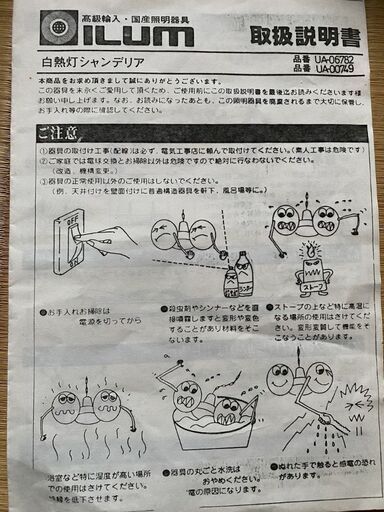 高級輸入・国産照明器具
ILUM
取扱説明書
白熱灯シャンデリア
品番 UA-06782
品番 UA-00749
本商品をお求め頂きまして誠にありがとうございます。
この器具を末永くご愛用して頂くため、ご使用前にこの取扱説明書を最後迄お読みくださいます様
お願い申し上げます。なお、お読みになったあとも、この照明器具を廃棄されるまで大切に保管し、
お手入れ等の際に確認してください。
ご注意
①器具の取付け工事(配線)は必ず、電気工事店に頼んで取付けてください。(素人工事は危険です)
②ご家庭では電球交換とお掃除以外は危険ですので絶対に行なわないでください。
(改造、機構変更。)
③器具の正常使用以外のご使用はしないでください。
(例、天井付けを壁面付けに普通構造器具を軒下、風呂場等に。)
OFF
シンナー
ストーブ
●お手入れお掃除は
電源を切ってから
●殺虫剤やシンナーなどを直
接噴霧しますと変形や変色
することがあり材料をそこ
ないます。
●ストーブの上など特に高温に
なる場所の使用はさけてくだ
さい。変形変質して機能をそ
こなうことがあります。
浴室など特に湿度が高い場所
での使用はさけてください。
絶縁を低下させます。
●器具の丸ごと水洗は
おやめください。
電の原因になります。
●ぬれた手で触ると感電の恐れ
があります。